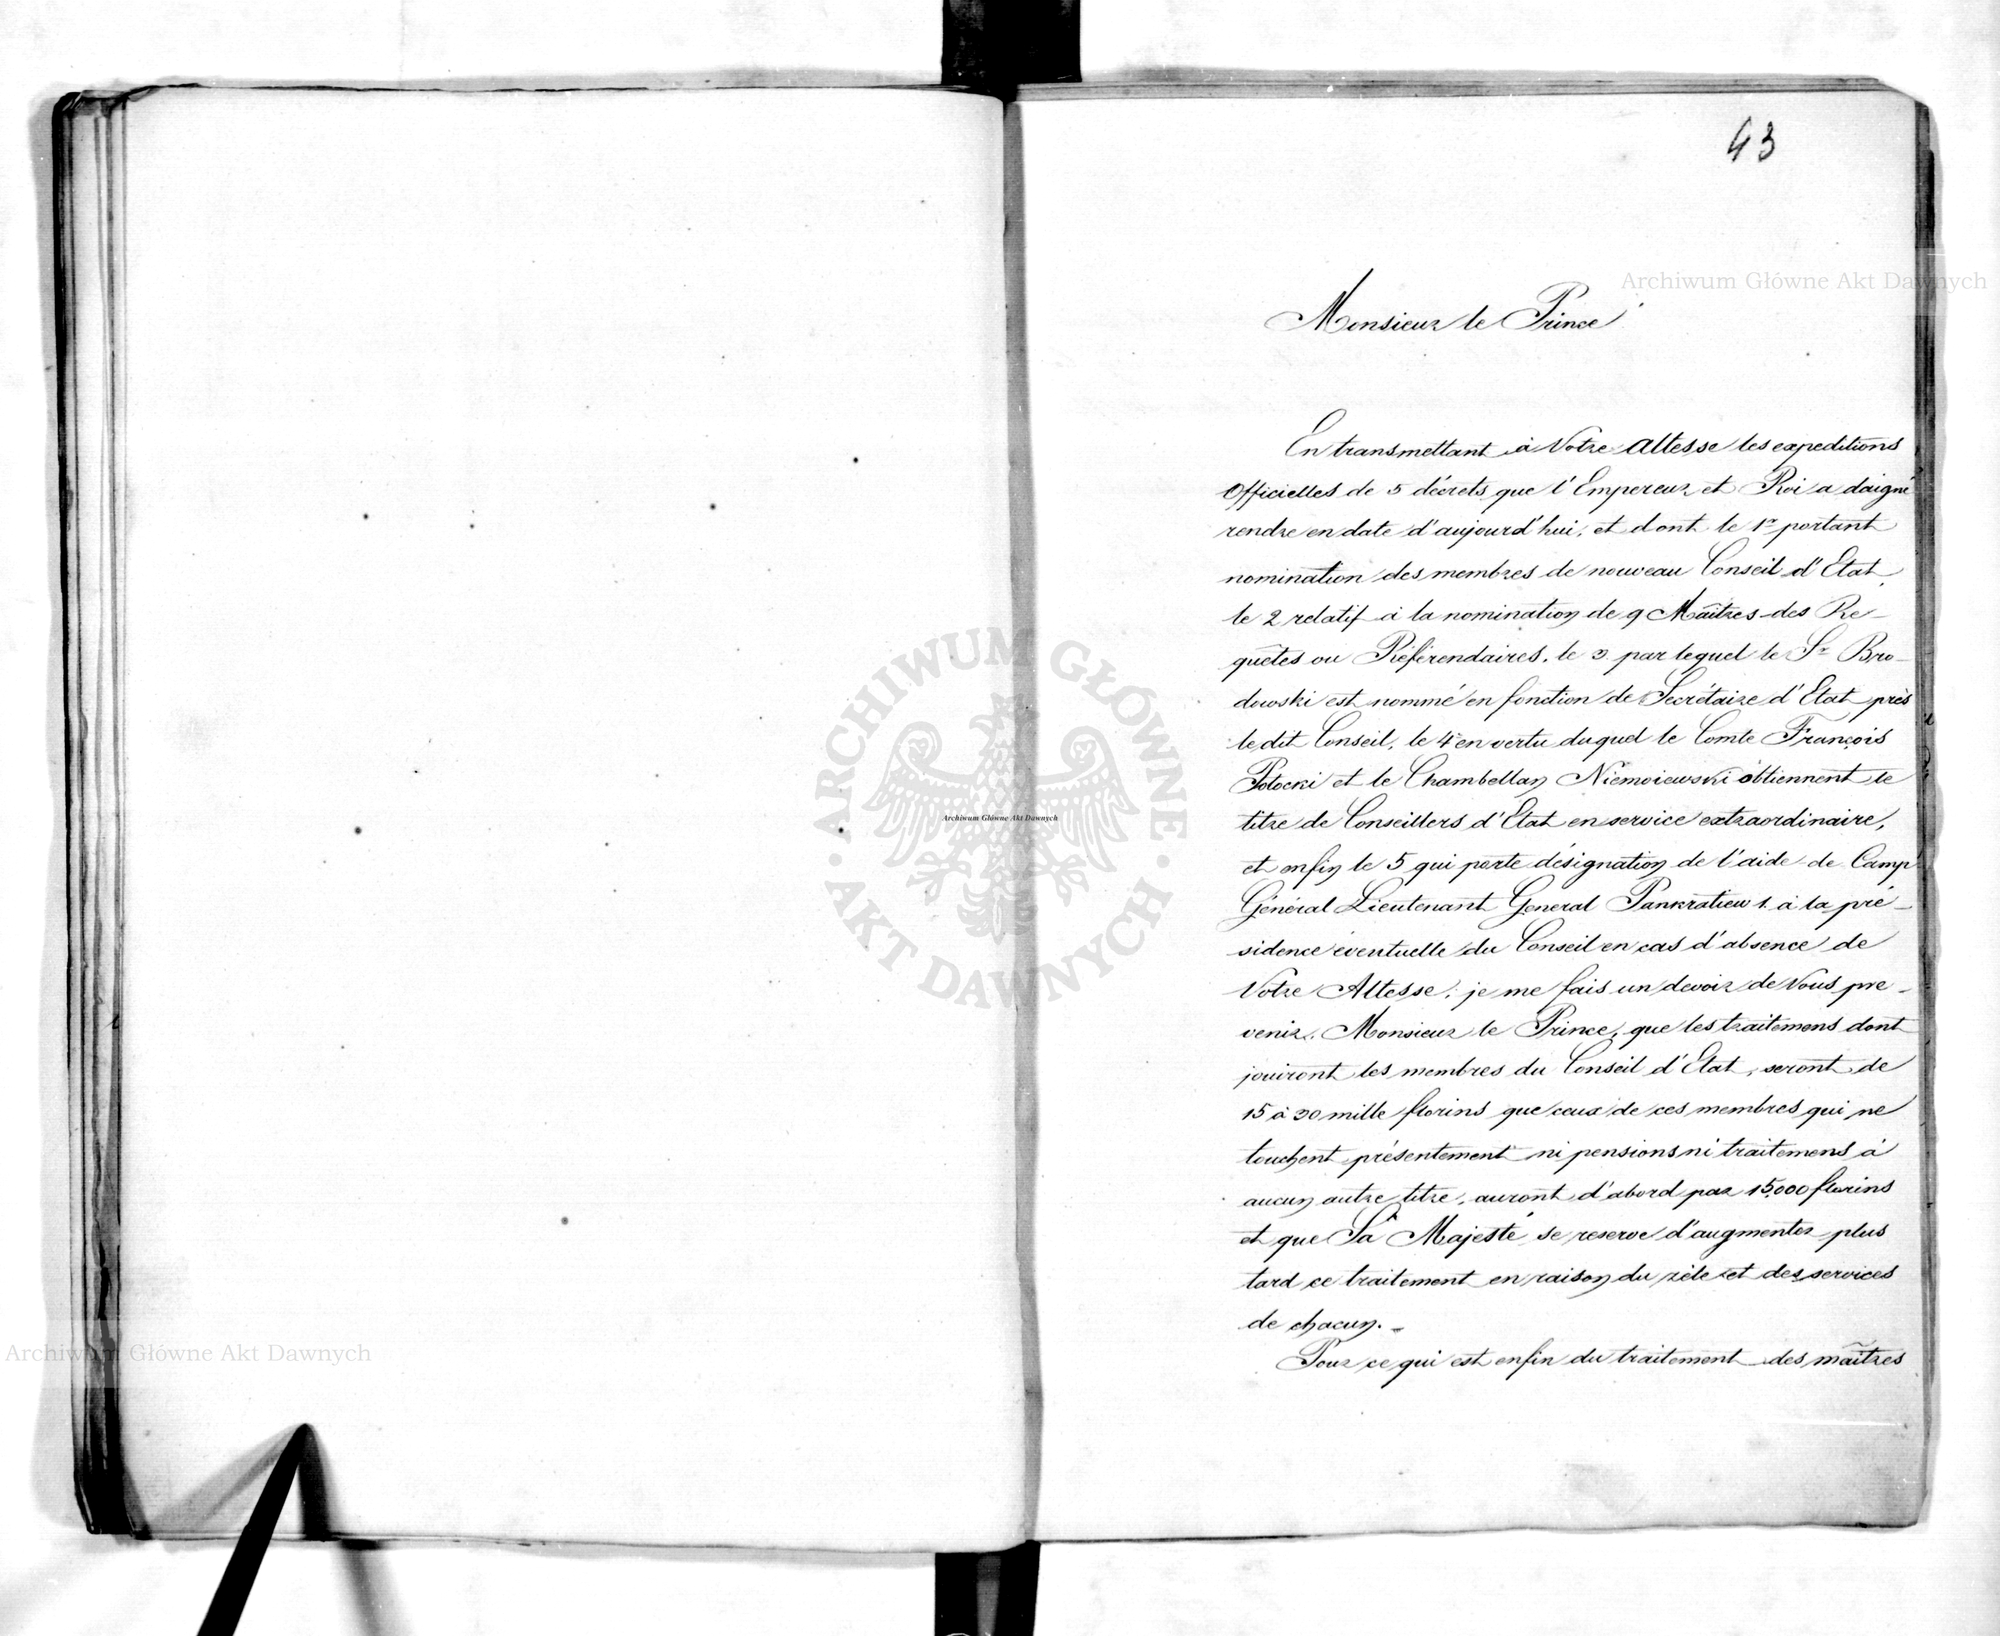 43
Archiwum Główne Akt Dawnych
Monsieur le Prince
En transmettant à Votre Altesse les expeditions
Officielles de 5 décrets que l'Empereur et Roi a daigné
rendre en date d'aujourd'hui, et dont le 1r portant
nomination des membres de nouveau Conseil d'Etat,
le 2 relatif à la nomination de 9 Maîtres des Re-
quêtes ou Référendaires, le 3 par lequel le Sr Bro-
dowski est nommé en fonction de Secrétaire d'Etat près
le dit Conseil, le 4 en vertu duquel le Comte François
Potocki et le Chambellan Niemoiewski obtiennent le
titre de Conseillers d'Etat en service extraordinaire,
et enfin le 5 qui porte désignation de l'aide de Camp
Général Lieutenant General Pankratiew 1. à la pré-
sidence éventuelle du Conseil en cas d'absence de
Votre Altesse; je me fais un devoir de Vous pre-
venir, Monsieur le Prince, que les traitemens dont
jouiront les membres du Conseil d'Etat, seront de
15 à 30 mille florins que ceux de ces membres qui ne
touchent présentement ni pensions ni traitemens à
aucun autre titre, auront d'abord par 15,000 florins
et que Sa Majesté se reserve d'augmenter plus
tard ce traitement en raison du zèle et des services
de chacun. -
Pour ce qui est enfin du traitement des maîtres
ARCHIWUM GŁÓWNE AKT DAWNYCH
Archiwum Główne Akt Dawnych
Archiwum Główne Akt Dawnych